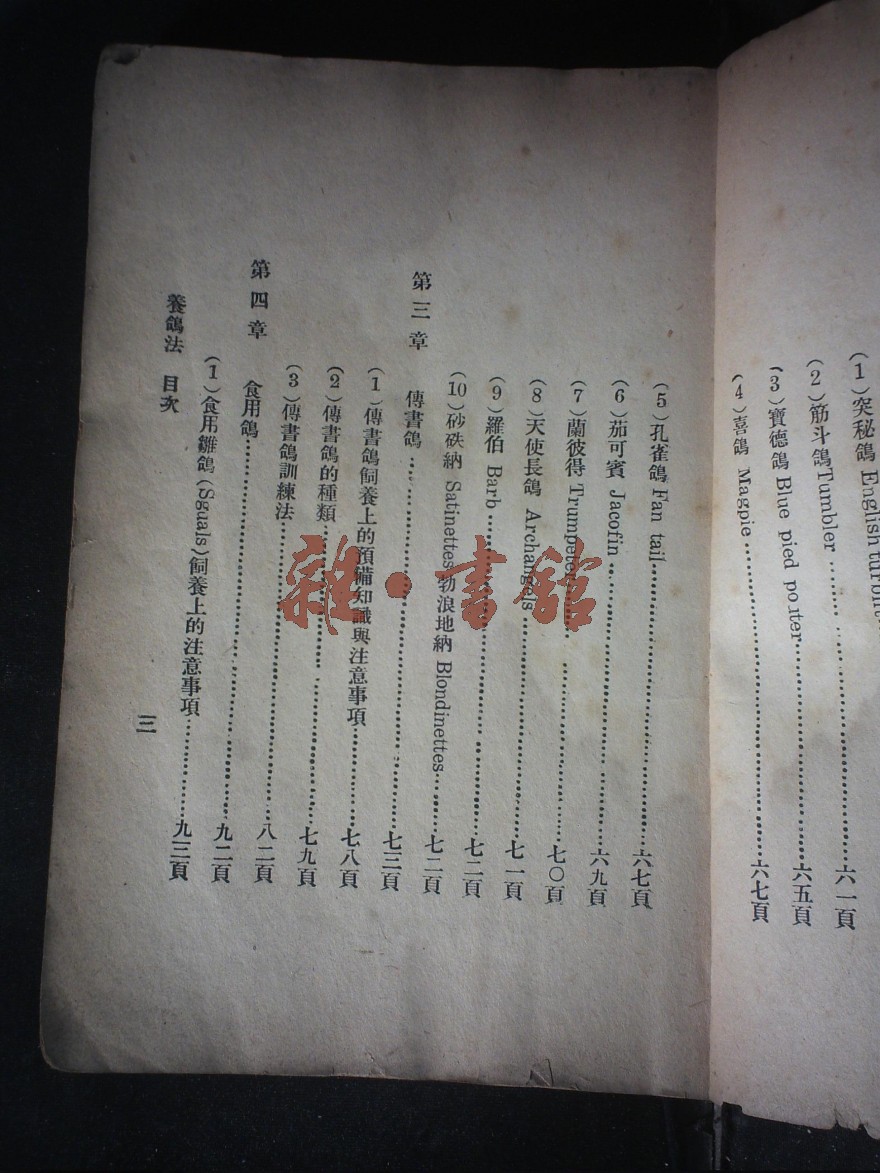 (1)突秘鴿 English turbit
(2)筋斗鴿Tumbler……………六一頁
(3)寶德鴿 Blue pied porter……………六五頁
(4)喜鴿 Magpie……………六七頁
(5)孔雀鴿Fan tail……………六七頁
(6)茄可賓 Jacofin……………六九頁
(7)蘭彼得 Trumpeter……………七〇頁
(8)天使長鴿 Archangels……………七一頁
(9)羅伯 Barb……………七二頁
(10)砂砆納 Satinettes勃浪地納 Blondinettes……………七二頁
第三章 傳書鴿……………七三頁
(1)傳書鴿飼養上的預備知識與注意事項……………七八頁
(2)傳書鴿的種類……………七九頁
(3)傳書鴿訓練法……………八二頁
第四章 食用鴿……………九二頁
(1)食用雛鴿(Sguals)飼養上的注意事項……………九三頁
養鴿法 目次
三
雜·書館